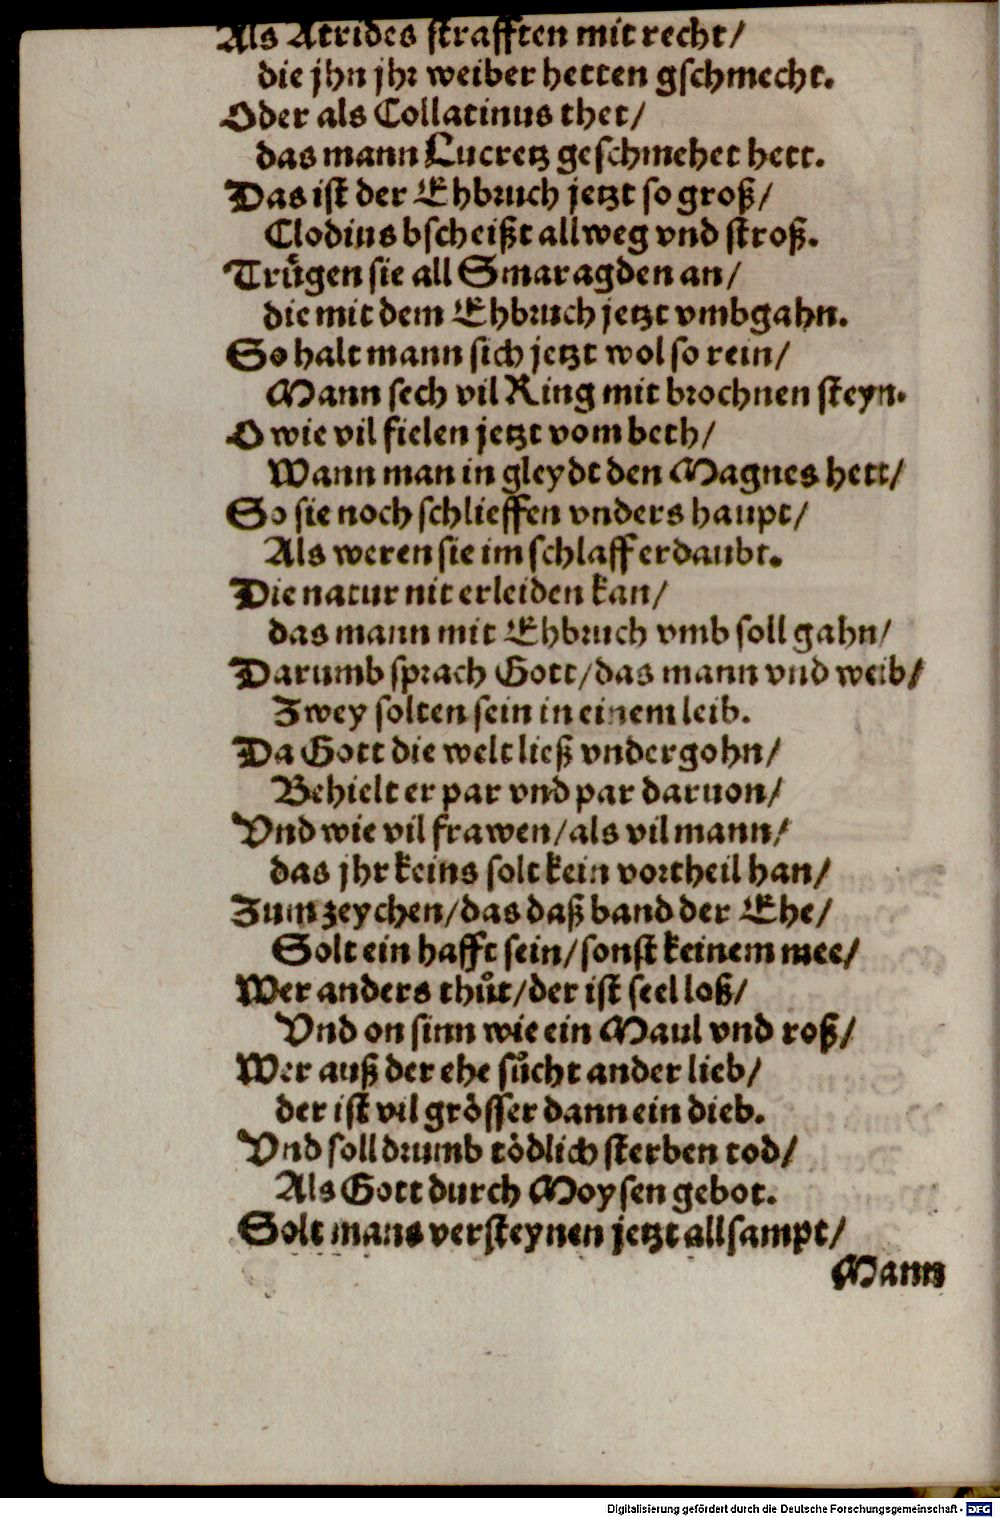 Als Atrides strafften mit recht/
die jhn jhr weiber hetten gschmecht.
Oder als Collatinus thet/
das mann Lucretz geschmehet hett.
Das ist der Ehbruch jetzt so groß/
Clodius bscheißt allweg vnd stroß.
Truͤgen sie all Smaragden an/
die mit dem Ehbruch jetzt vmbgahn.
So halt mann sich jetzt wol so rein/
Mann sech vil Ring mit brochnen steyn.
O wie vil fielen jetzt vom beth/
Wann man in gleydt den Magnes hett/
So sie noch schlieffen vnders haupt/
Als weren sie im schlaff erdaubt.
Die natur nit erleiden kan/
das mann mit Ehbruch vmb soll gahn/
Darumb sprach Gott/das mann vnd weib/
Zwey solten sein in einem leib.
Da Gott die welt ließ vndergohn/
Behielt er par vnd par daruon/
Vnd wie vil frawen/als vil mann/
das jhr keins solt kein vortheil han/
Zum zeychen/das daß band der Ehe/
Solt ein hafft sein/sonst keinem mee/
Wer anders thuͦt/der ist seel loß/
Vnd on sinn wie ein Maul vnd roß/
Wer auß der ehe suͦcht ander lieb/
der ist vil groͤsser dann ein dieb.
Vnd soll drumb toͤdlich sterben tod/
Als Gott durch Moysen gebot.
Solt mans versteynen jetzt allsampt/
Mann
Digitalisierung gefördert durch die Deutsche Forschungsgemeinschaft - DFG